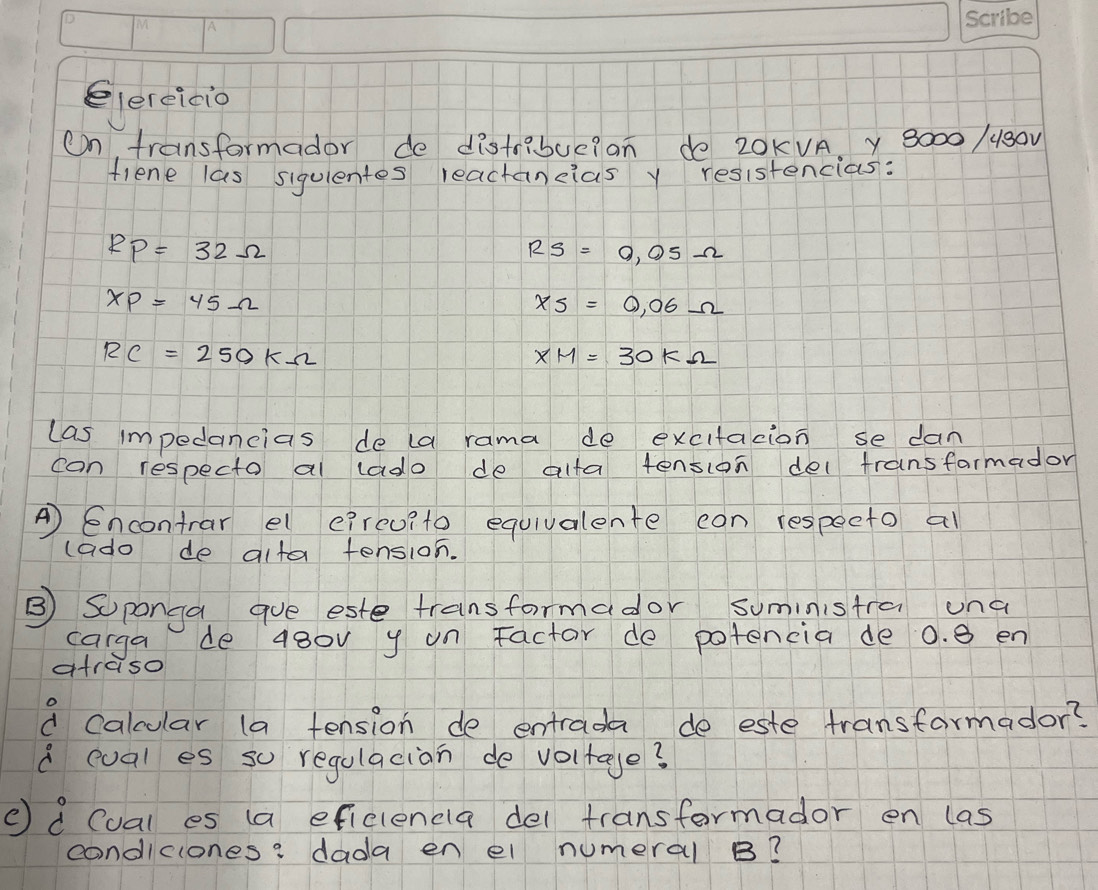 D M A
Scribe
Ejercicio
Un transformador de distribución de 20KVA y 8000/480V
tiene las siguientes reactancias y resistencias:
RP = 32 Ω RS = 0,05 Ω
XP = 45 Ω XS = 0,06 Ω
RC = 250 K Ω XM = 30 K Ω
Las impedancias de la rama de excitación se dan
con respecto al lado de alta tensión del transformador
A) Encontrar el circuito equivalente con respecto al
lado de alta tensión.
B) Suponga que este transformador suministra una
carga de 480V y un Factor de potencia de 0.8 en
atraso
¿ Calcular la tensión de entrada de este transformador?
¿ cual es su regulación de voltaje?
C) ¿ Cual es la eficiencia del transformador en las
condiciones: dada en el numeral B?